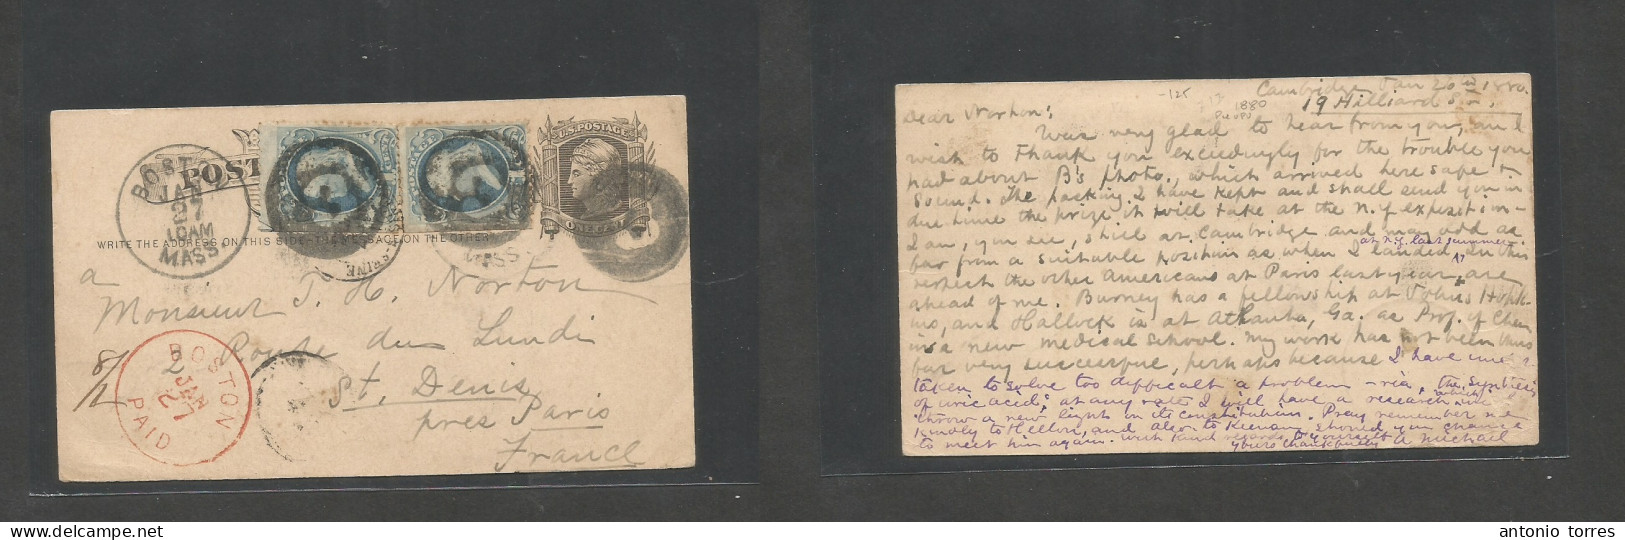 BOSTON
JAN
27
10AM
MASS
POST
U.S. POSTAGE
ONE CENT
WRITE THE ADDRESS ON THIS SIDE - THE MESSAGE ON THE OTHER
a
Monsieur T. H. Norton
2 Route du Lundi
St. Denis
près Paris
France
BOSTON
JAN
27
PAID
-125
1880
Cambridge Jan 26th 1880.
19 Hilliard St.,
Dear Norton:
Was very glad to hear from you, and
wish to thank you exceedingly for the trouble you
had about B's photo., which arrived here safe &
sound. The packing I have kept and shall send you in
due time the prize it will take at the N.Y. exposition-
I am, you see, still at Cambridge and may add as
far from a suitable position as when I landed at N.Y. last summer. In this
respect the other Americans at Paris last year, are
ahead of me. Burney has a fellowship at Johns Hopk-
ins, and Hallock is at Atlanta, Ga. as Prof. of Chem
in a new medical school. My work has not been thus
far very successful, perhaps because I have under
taken to solve too difficult a problem - via, the synthesis
of uric acid; at any rate I will have a research which
throw a new light on its constitution. Pray remember me
kindly to Hellon, and also to Keenan, should you chance
to meet him again. With kind regards to yourself
yours thankfully A Michael
antonio torres